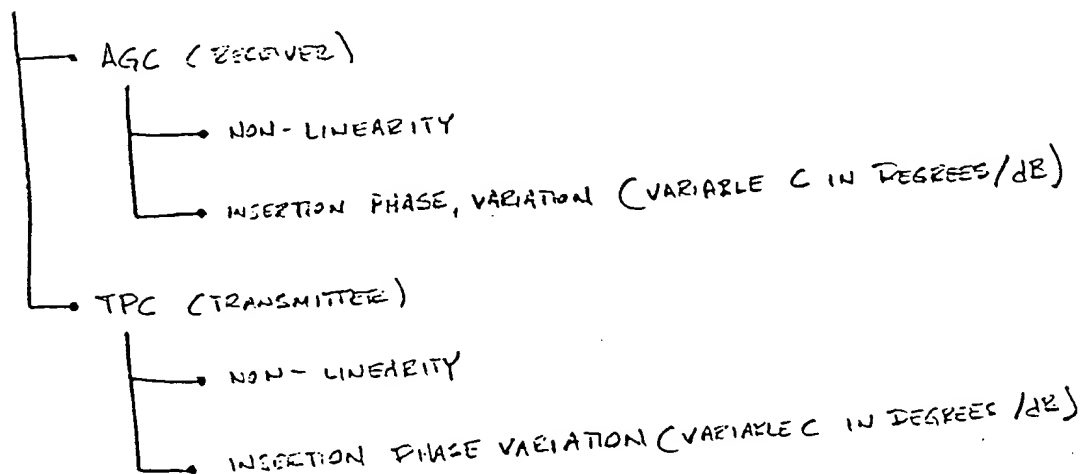 AGC (RECEIVER)
NON-LINEARITY
INSERTION PHASE, VARIATION (VARIABLE C IN DEGREES/dB)
TPC (TRANSMITTER)
NON-LINEARITY
INSERTION PHASE VARIATION (VARIABLE C IN DEGREES/dB)